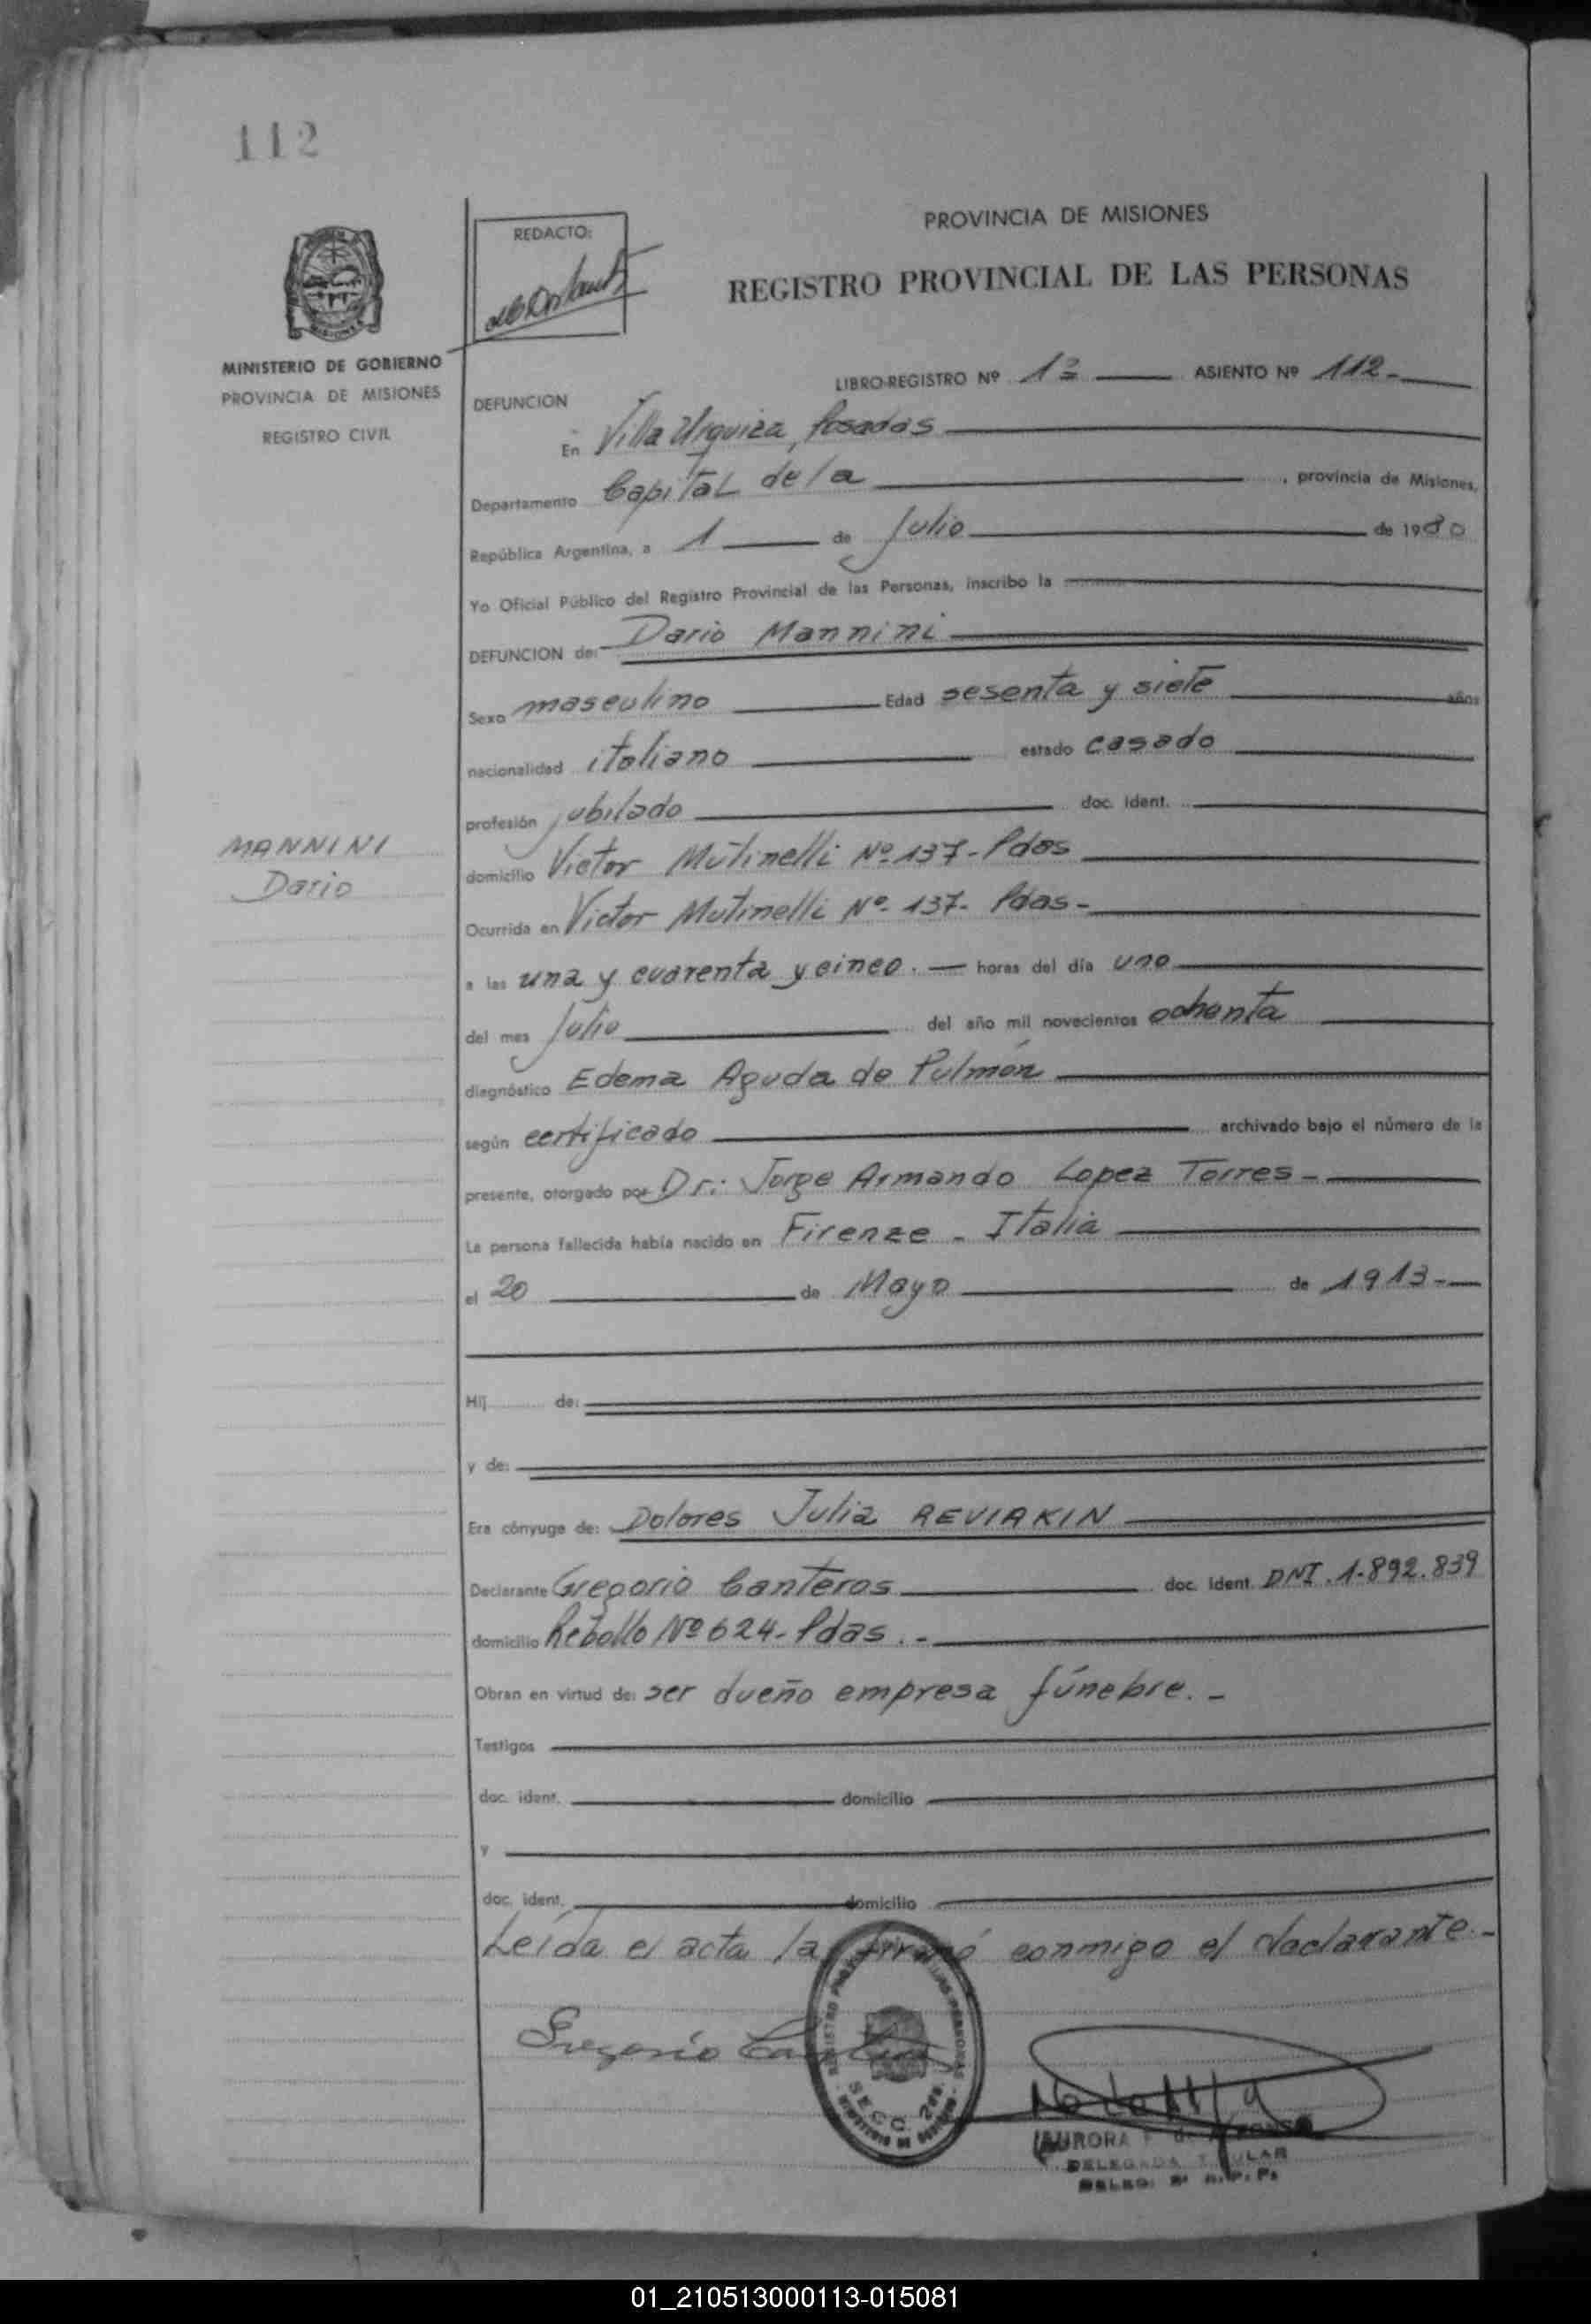 112
PROVINCIA DE MISIONES
REDACTO:
REGISTRO PROVINCIAL DE LAS PERSONAS
MINISTERIO DE GOBIERNO
PROVINCIA DE MISIONES
REGISTRO CIVIL
LIBRO-REGISTRO Nº 1º ASIENTO Nº 112-
DEFUNCION
En Villa Urquiza, Posadas
Departamento Capital de la , provincia de Misiones,
República Argentina, a 1 de Julio de 1980
Yo Oficial Público del Registro Provincial de las Personas, inscribo la
DEFUNCION de: Dario Mannini
Sexo masculino Edad sesenta y siete años
nacionalidad italiano estado casado
profesión jubilado doc. ident.
MANNINI
Dario
domicilio Victor Mutinelli Nº 137- Pdas
Ocurrida en Victor Mutinelli Nº- 137- Pdas-
a las una y cuarenta y cinco.- horas del día uno
del mes Julio del año mil novecientos ochenta
diagnóstico Edema Aguda de Pulmón
según certificado archivado bajo el número de la
presente, otorgado por Dr: Jorge Armando Lopez Torres-
La persona fallecida había nacido en Firenze - Italia
el 20 de Mayo de 1913-
Hij de:
y de:
Era cónyuge de: Dolores Julia REVIAKIN
Declarante Gregorio Canteros doc. ident. DNI. 1.892.839
domicilio Rebollo Nº 624- Pdas.-
Obran en virtud de: ser dueño empresa fúnebre.-
Testigos
doc. ident. domicilio
y
doc. ident. domicilio
Leída el acta la firmó conmigo el declarante.-
Gregorio Canteros
SECC. 2da.
MINISTERIO DE GOBIERNO
AURORA F. de
DELEGADA TITULAR
DELEG. 2ª R.P.P.
01_210513000113-015081